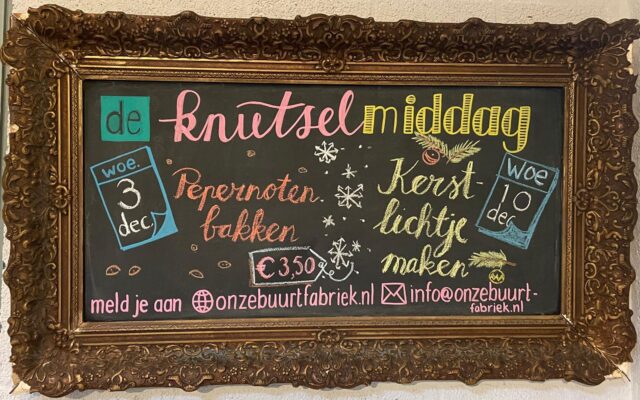 de knutselmiddag
woe.
3
dec.
Pepernoten
bakken
€3,50
Kerst-
lichtje
maken
woe
10
dec.
meld je aan onzebuurtfabriek.nl info@onzebuurt-
fabriek.nl